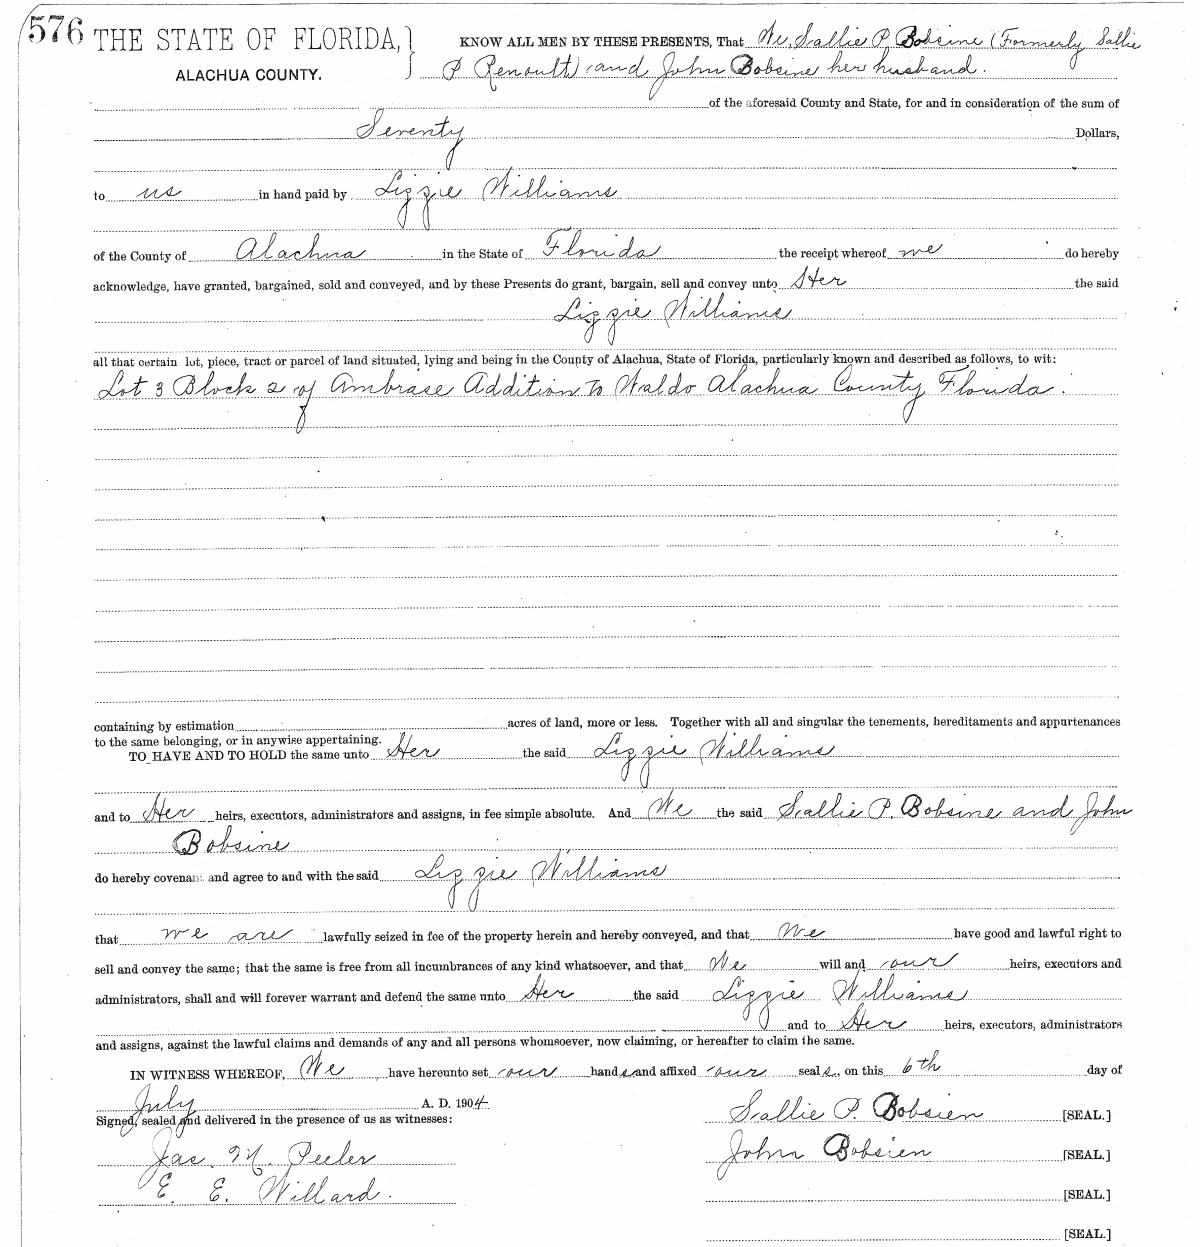 576 THE STATE OF FLORIDA, } KNOW ALL MEN BY THESE PRESENTS, That We, Sallie P. Bobsine (Formerly Sallie
ALACHUA COUNTY. P Renoult) and John Bobsine her husband.
of the aforesaid County and State, for and in consideration of the sum of
Seventy Dollars,
to us in hand paid by Lizzie Williams
of the County of Alachua in the State of Florida the receipt whereof we do hereby
acknowledge, have granted, bargained, sold and conveyed, and by these Presents do grant, bargain, sell and convey unto Her the said
Lizzie Williams
all that certain lot, piece, tract or parcel of land situated, lying and being in the County of Alachua, State of Florida, particularly known and described as follows, to wit:
Lot 3 Block 2 of Ambrase Addition to Waldo Alachua County Florida.
containing by estimation acres of land, more or less. Together with all and singular the tenements, hereditaments and appurtenances
to the same belonging, or in anywise appertaining.
TO HAVE AND TO HOLD the same unto Her the said Lizzie Williams
and to Her heirs, executors, administrators and assigns, in fee simple absolute. And We the said Sallie P. Bobsine and John
Bobsine
do hereby covenant and agree to and with the said Lizzie Williams
that we are lawfully seized in fee of the property herein and hereby conveyed, and that We have good and lawful right to
sell and convey the same; that the same is free from all incumbrances of any kind whatsoever, and that We will and our heirs, executors and
administrators, shall and will forever warrant and defend the same unto Her the said Lizzie Williams
and to Her heirs, executors, administrators
and assigns, against the lawful claims and demands of any and all persons whomsoever, now claiming, or hereafter to claim the same.
IN WITNESS WHEREOF, We have hereunto set our hands and affixed our seals, on this 6th day of
July A. D. 1904
Signed, sealed and delivered in the presence of us as witnesses: Sallie P. Bobsien [SEAL.]
Jas. M. Peeler John Bobsien [SEAL.]
E. E. Willard. [SEAL.]
[SEAL.]